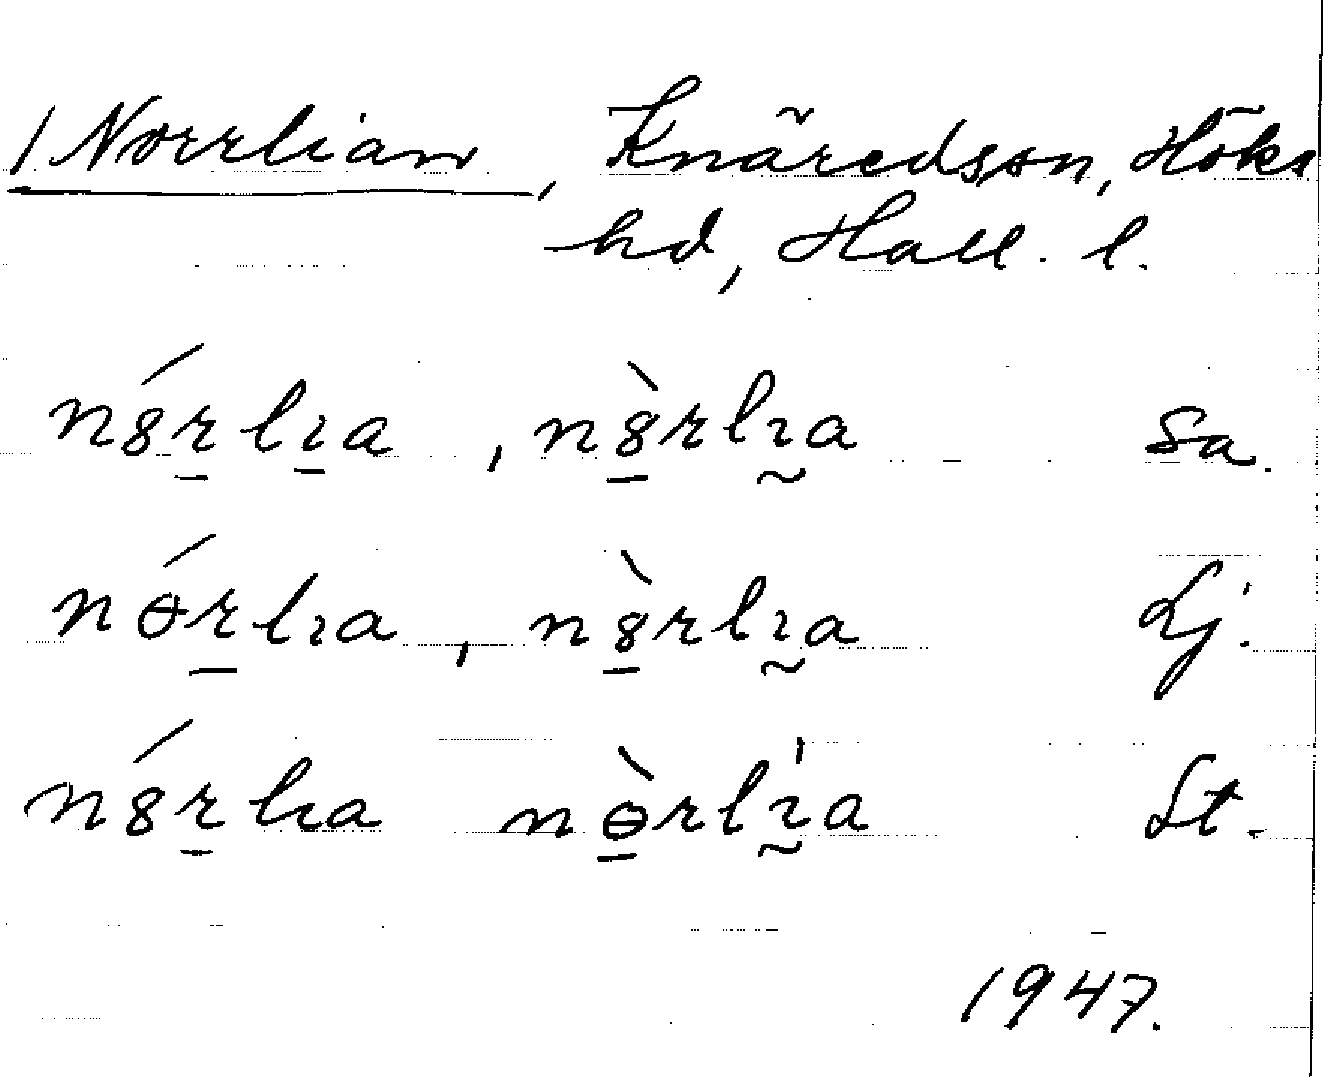 / Norrlian, Knäredssn, Höks
hd, Hall. l.
n8́rlıa, n8̀rlıa sa.
nɵ́rlıa, n8̀rlıa Lj.
n8́rlıa nɵ̀rlı̍a St.
1947.